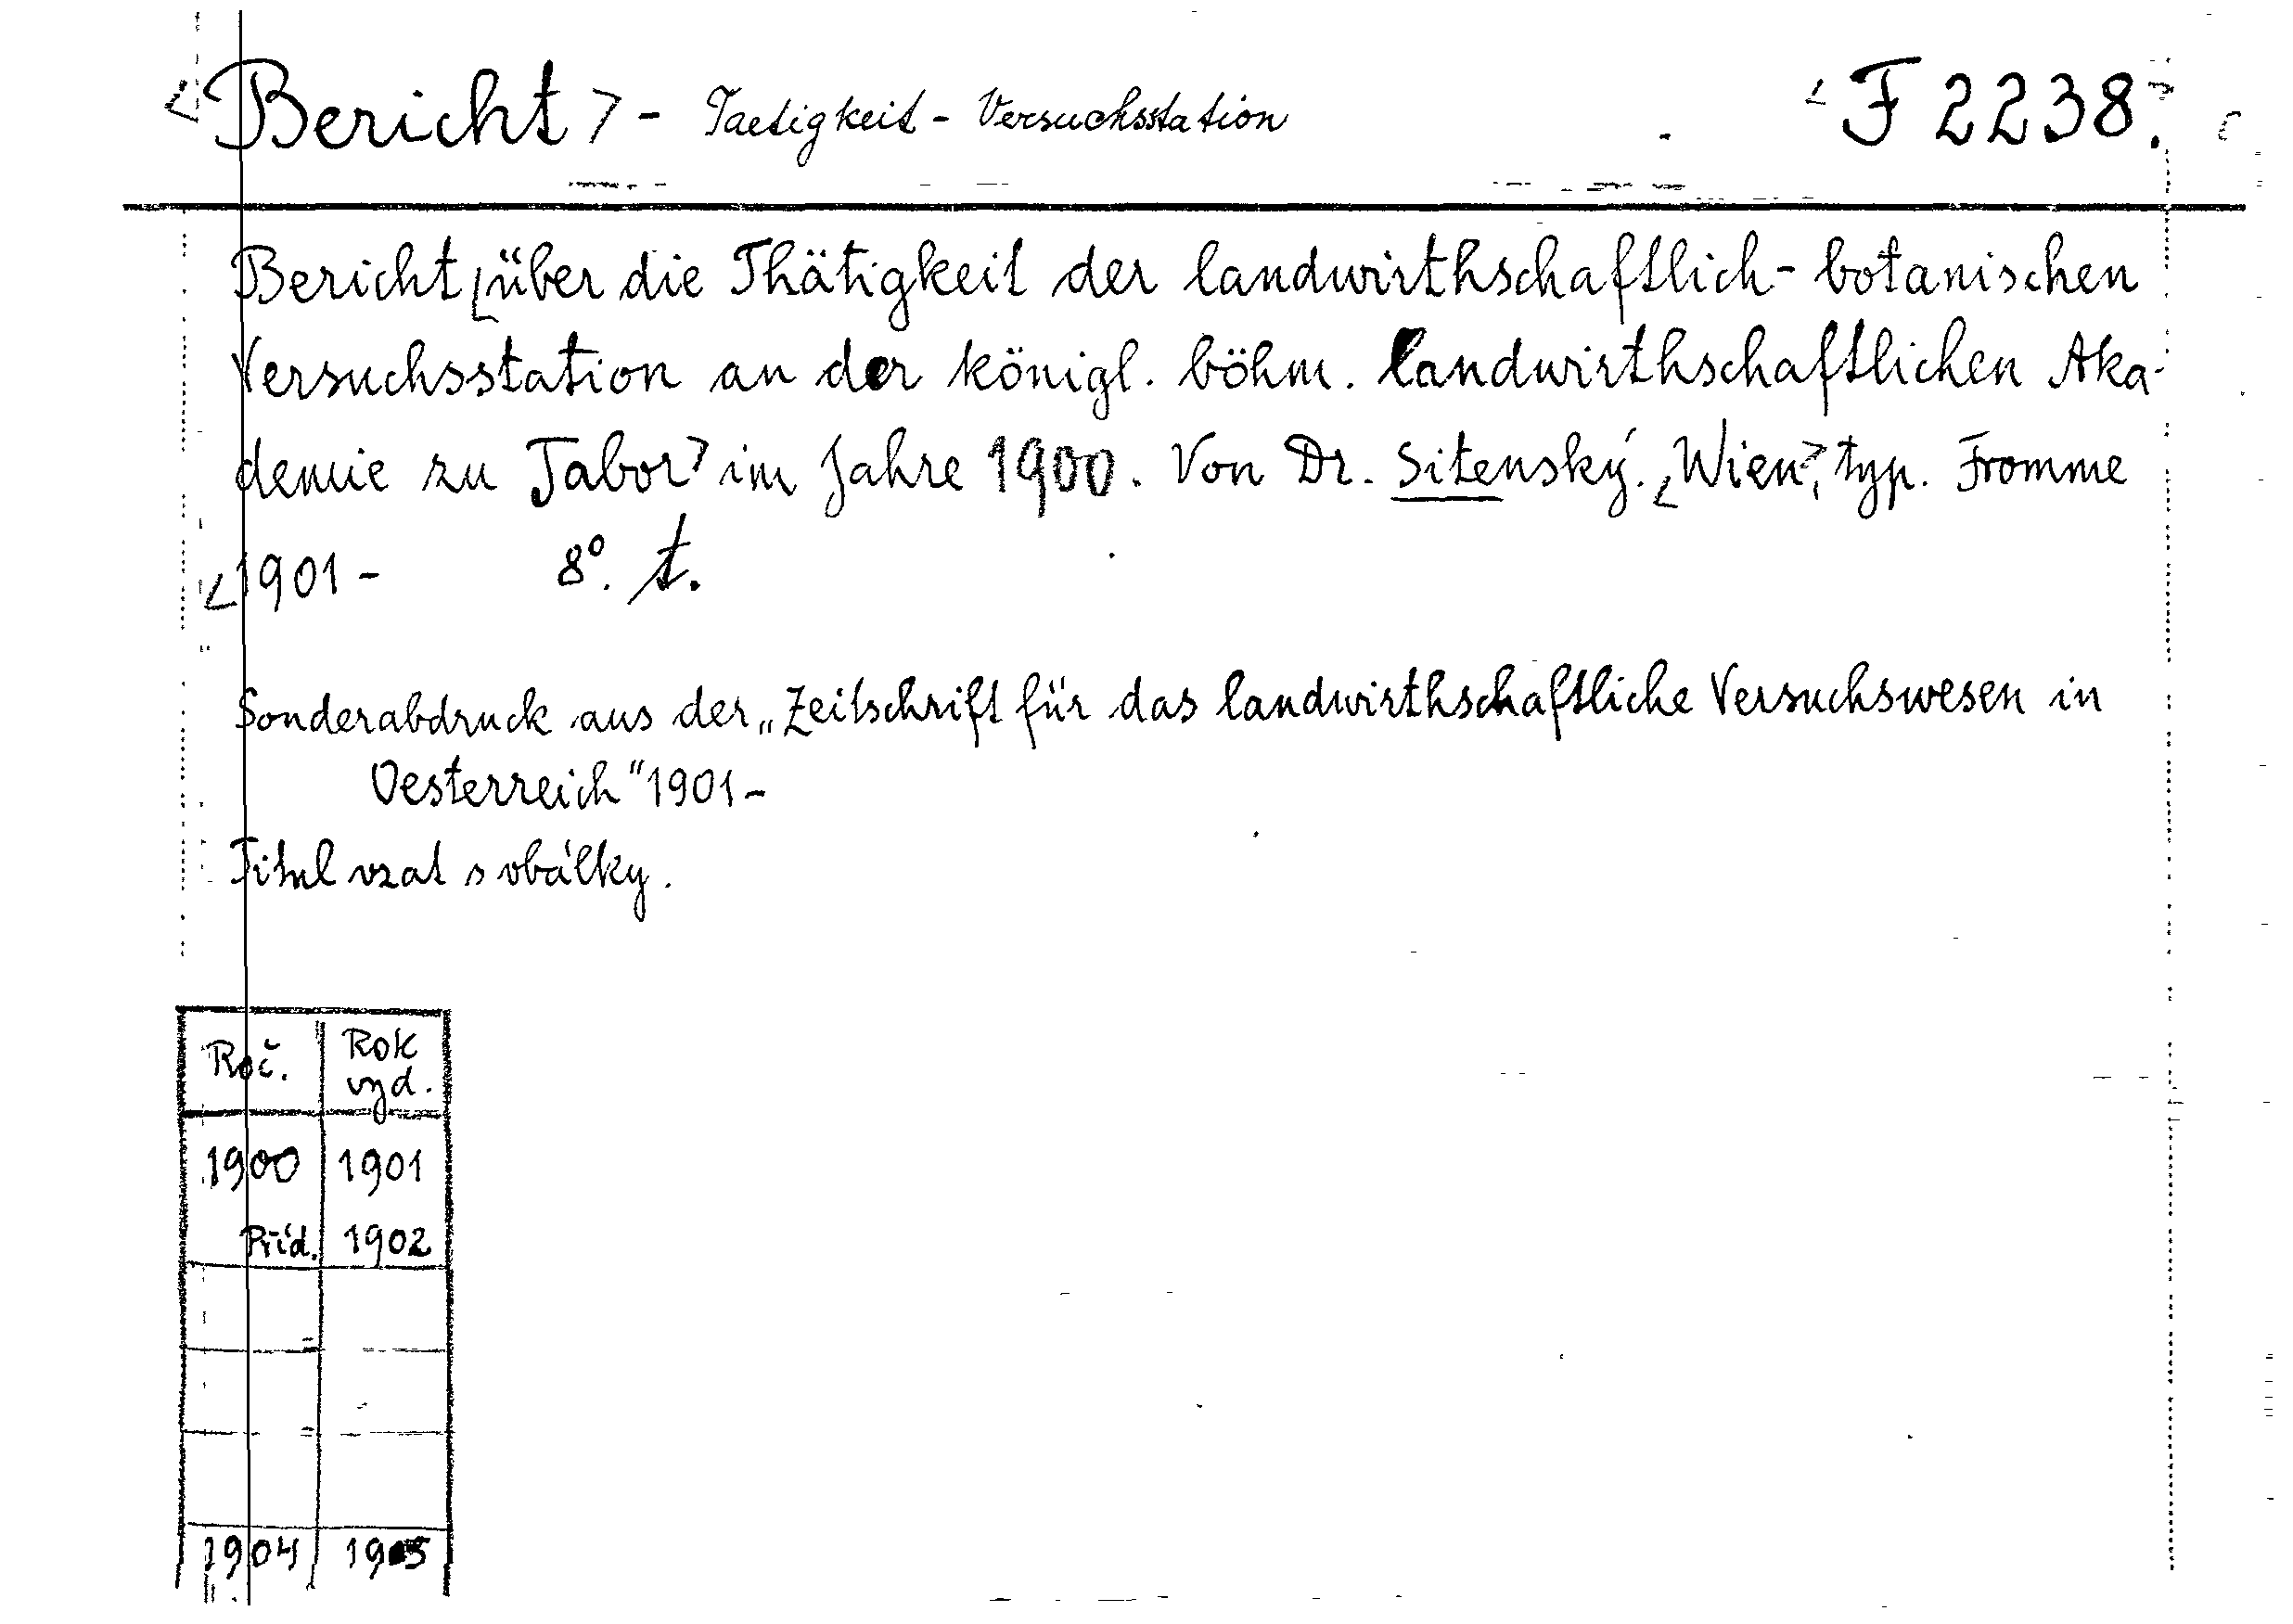 <Bericht> - Taetigkeit - Versuchsstation <F 2238.>
Bericht <über die Thätigkeit der landwirthschaftlich-botanischen
Versuchsstation an der königl. böhm. landwirthschaftlichen Aka-
demie zu Tabor> im Jahre 1900. Von Dr. Sitenský. <Wien>, typ. Fromme
<1901- 8°. t.
Sonderabdruck aus der „Zeitschrift für das landwirthschaftliche Versuchswesen in
Oesterreich" 1901-
Titul vzat s obálky.
Roč. Rok vyd.
1900 1901
Příd. 1902
1904 1905